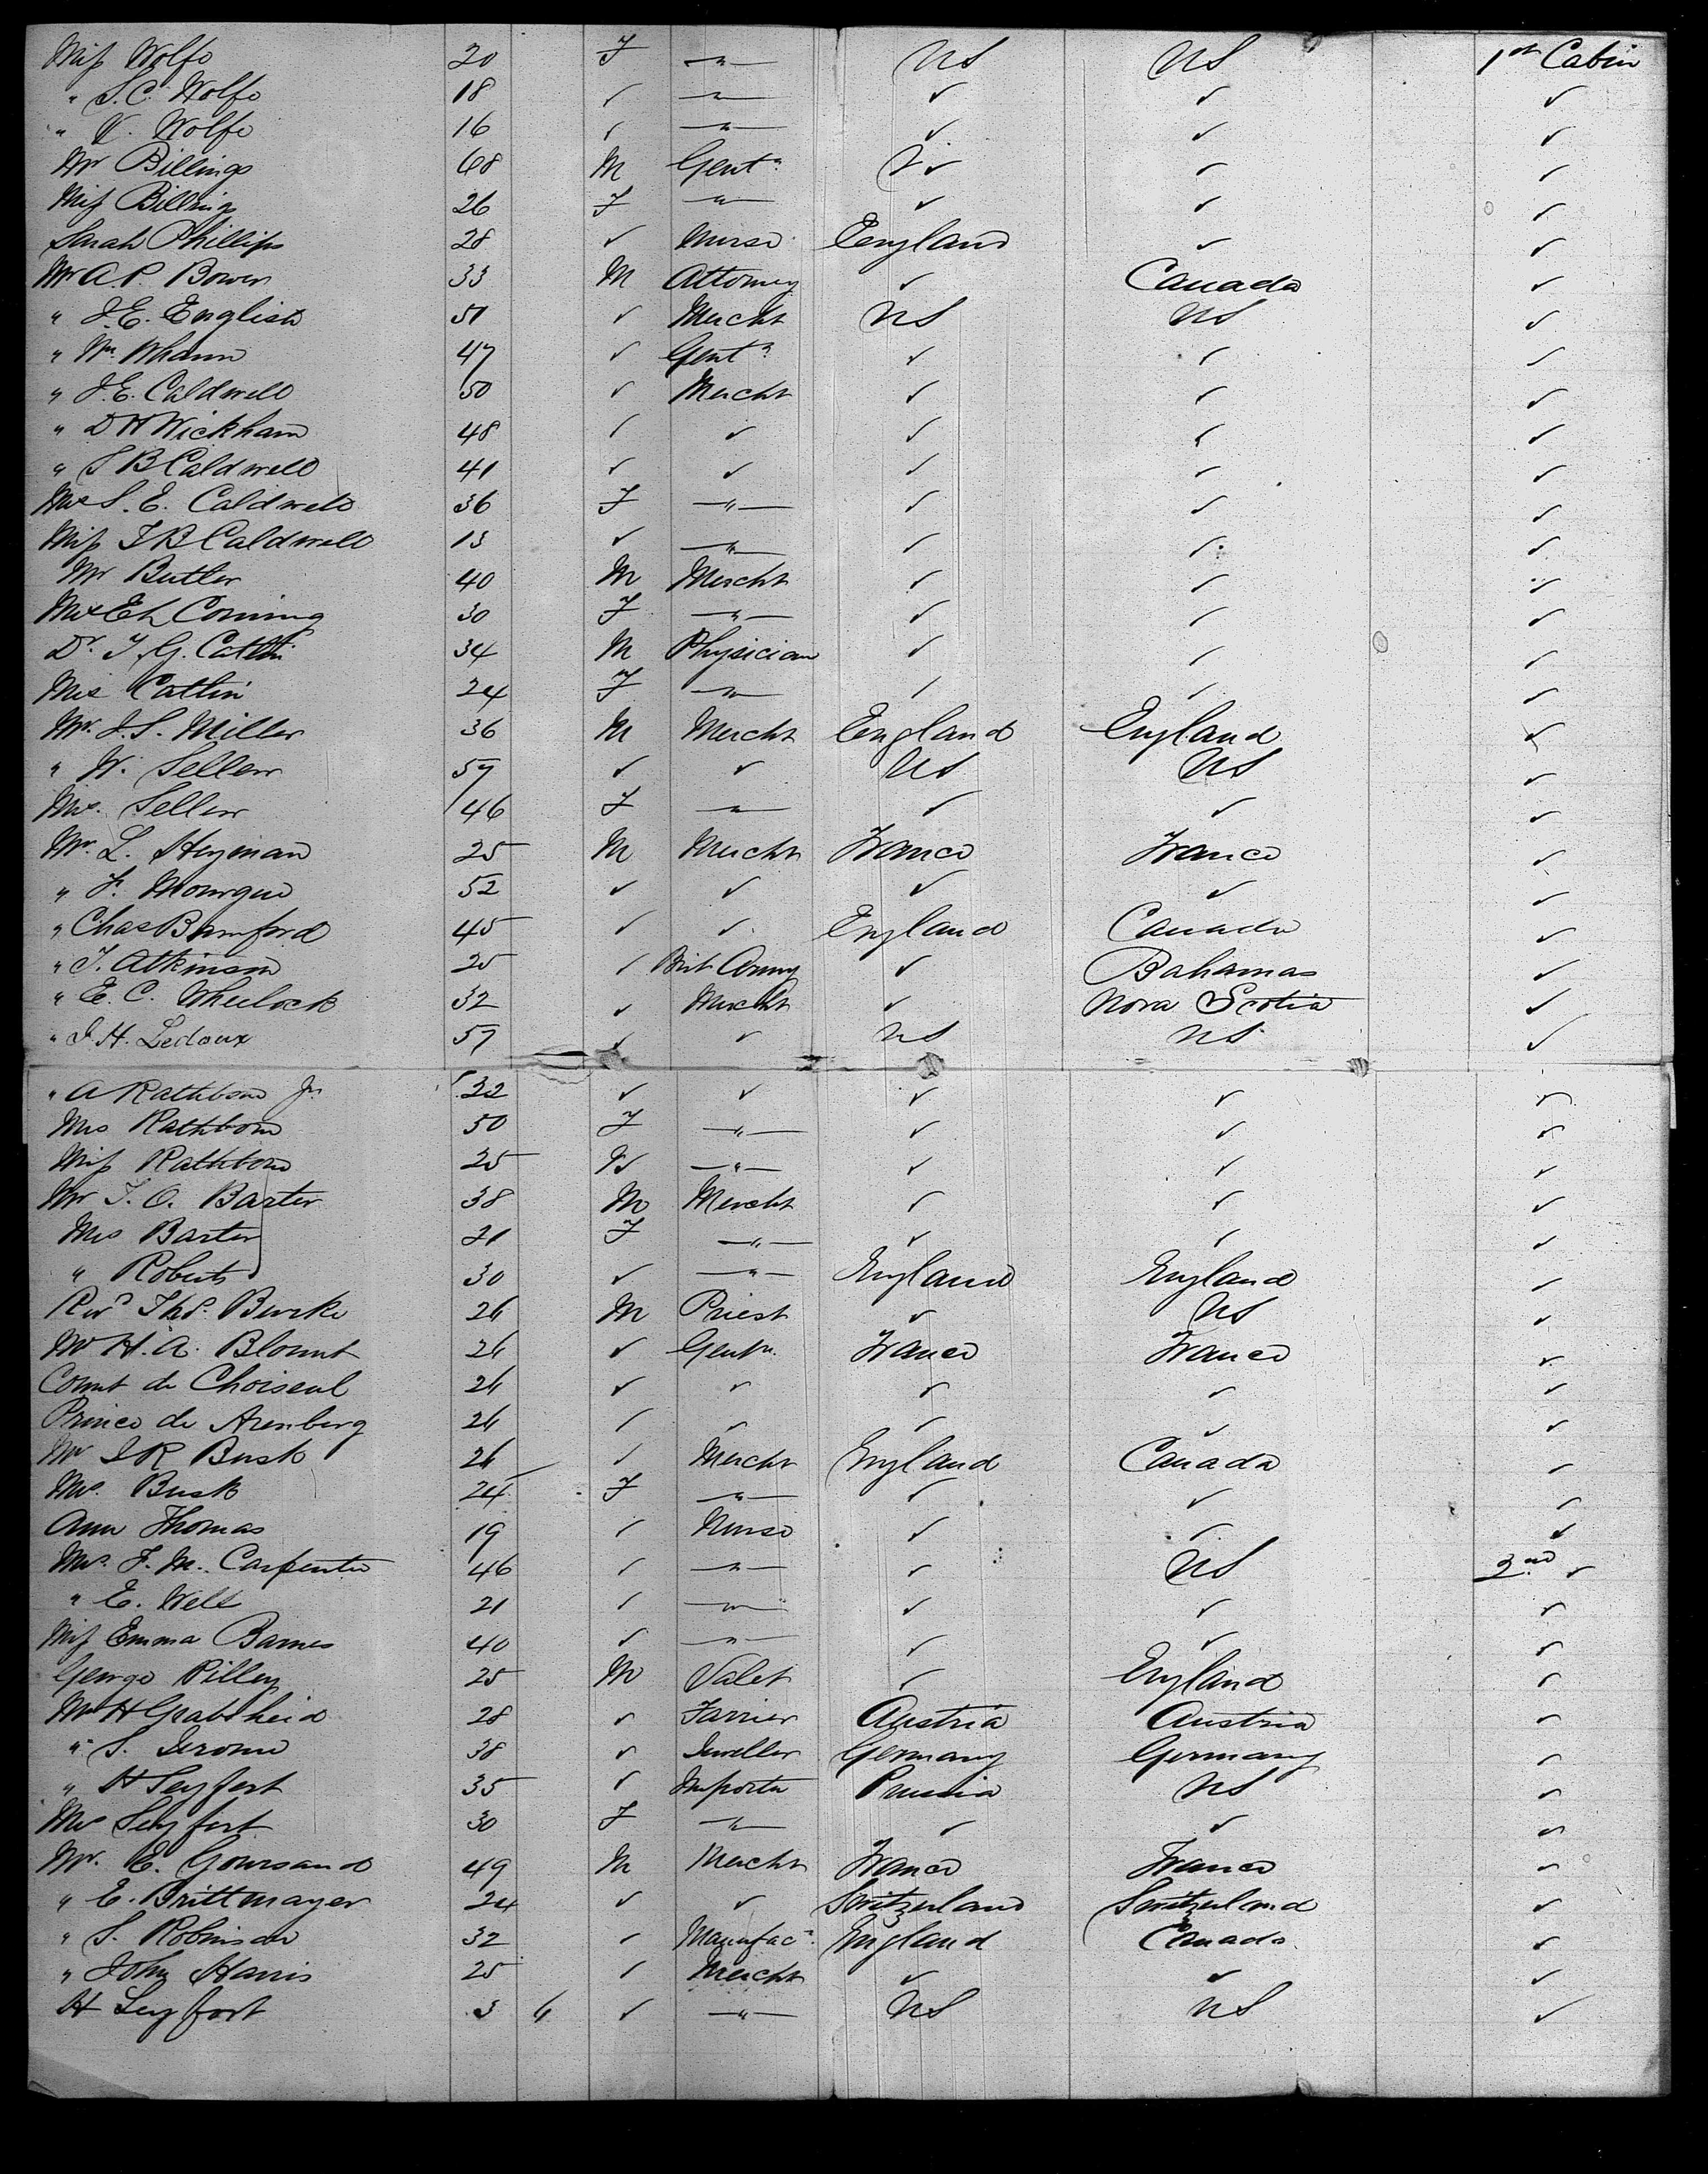 Miss Wolfe 20 F —"— US US 1st Cabin
" S.C. Wolfe 18 ✓ —"— ✓ ✓ ✓
" V. Wolfe 16 ✓ —"— ✓ ✓ ✓
Mr Billings 68 M Gentn ✓ ✓ ✓
Miss Billings 26 F —"— ✓ ✓ ✓
Sarah Phillips 28 ✓ Nurse England ✓ ✓
Mr A.P. Bower 33 M Attorney ✓ Canada ✓
" J.E. English 51 ✓ Mercht US US ✓
" Wm Whann 47 ✓ Gentn ✓ ✓ ✓
" J.E. Caldwell 50 ✓ Mercht ✓ ✓ ✓
" D H Wickham 48 ✓ ✓ ✓ ✓ ✓
" S B Caldwell 41 ✓ ✓ ✓ ✓ ✓
Mrs S. E. Caldwell 36 F —"— ✓ ✓ ✓
Miss F B Caldwell 13 ✓ —"— ✓ ✓ ✓
Mr Butler 40 M Mercht ✓ ✓ ✓
Mrs E L Corning 30 F —"— ✓ ✓ ✓
Dr. F. G. Catlin 34 M Physician ✓ ✓ ✓
Mrs Catlin 24 F —"— ✓ ✓ ✓
Mr. J.S. Miller 36 M Mercht England England ✓
" W. Sellew 57 ✓ ✓ US US ✓
Mrs. Sellew 46 F —"— ✓ ✓ ✓
Mr. L. Heyman 25 M Mercht France France ✓
" F. Mourgue 52 ✓ ✓ ✓ ✓ ✓
" Chas Bamford 45 ✓ ✓ England Canada ✓
" T. Atkinson 25 ✓ Brit Army ✓ Bahamas ✓
" E. C. Wheelock 32 ✓ Mercht ✓ Nova Scotia ✓
" J. H. Ledoux 57 ✓ ✓ US US ✓
" A Rathbone Jr. 32 ✓ ✓ ✓ ✓ ✓
Mrs Rathbone 50 F —"— ✓ ✓ ✓
Miss Rathbone 25 ✓ —"— ✓ ✓ ✓
Mr F. O. Barter 38 M Mercht ✓ ✓ ✓
Mrs Barter 21 F —"— ✓ ✓ ✓
" Roberts 30 ✓ —"— England England ✓
Revd Thos. Burke 26 M Priest ✓ US ✓
Mr H. A. Blount 26 ✓ Gentn. France France ✓
Count de Choiseul 26 ✓ ✓ ✓ ✓ ✓
Prince de Arenberg 26 ✓ ✓ ✓ ✓ ✓
Mr J R Busk 26 ✓ Mercht England Canada ✓
Mrs. Busk 24 F —"— ✓ ✓ ✓
Ann Thomas 19 ✓ Nurse ✓ ✓ ✓
Mrs. F. M. Carpenter 46 ✓ —"— ✓ US 2nd ✓
" E. Welt 21 ✓ —"— ✓ ✓ ✓
Miss Emma Barnes 40 ✓ —"— ✓ ✓ ✓
George Pilley 25 M Valet ✓ England ✓
Mr H Grabsheid 28 ✓ Farrier Austria Austria ✓
" S. Jerome 38 ✓ Jeweller Germany Germany ✓
" H Seyfert 35 ✓ Importer Prussia US ✓
Mrs Seyfert 30 F —"— ✓ ✓ ✓
Mr. E. Goursand 49 M Mercht France France ✓
" E. Brittmayer 24 ✓ ✓ Switzerland Switzerland ✓
" S. Robinson 32 ✓ Manufacr. England Canada ✓
" John Harris 25 ✓ Mercht ✓ ✓ ✓
H Seyfort 3 6 ✓ —"— US US ✓